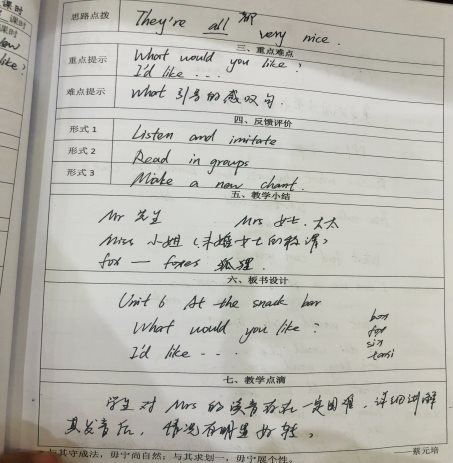 课时
课时
like?
思路点拨 They're all 都 very nice.
三、重点难点
重点提示 What would you like?
I'd like ...
难点提示 What 引导的感叹句.
四、反馈评价
形式1 Listen and imitate
形式2 Read in groups
形式3 Make a new chant.
五、教学小结
Mr 先生 Mrs 女士.太太
Miss 小姐(未婚女士的称谓)
fox — foxes 狐狸.
六、板书设计
Unit 6 At the snack bar
What would you like? box
fox
I'd like - - . six
taxi
七、教学点滴
学生对 Mrs 的读音存在一定困难,详细讲解
其发音后,情况有明显好转。
与其守成法,毋宁尚自然;与其求划一,毋宁展个性。 ——蔡元培